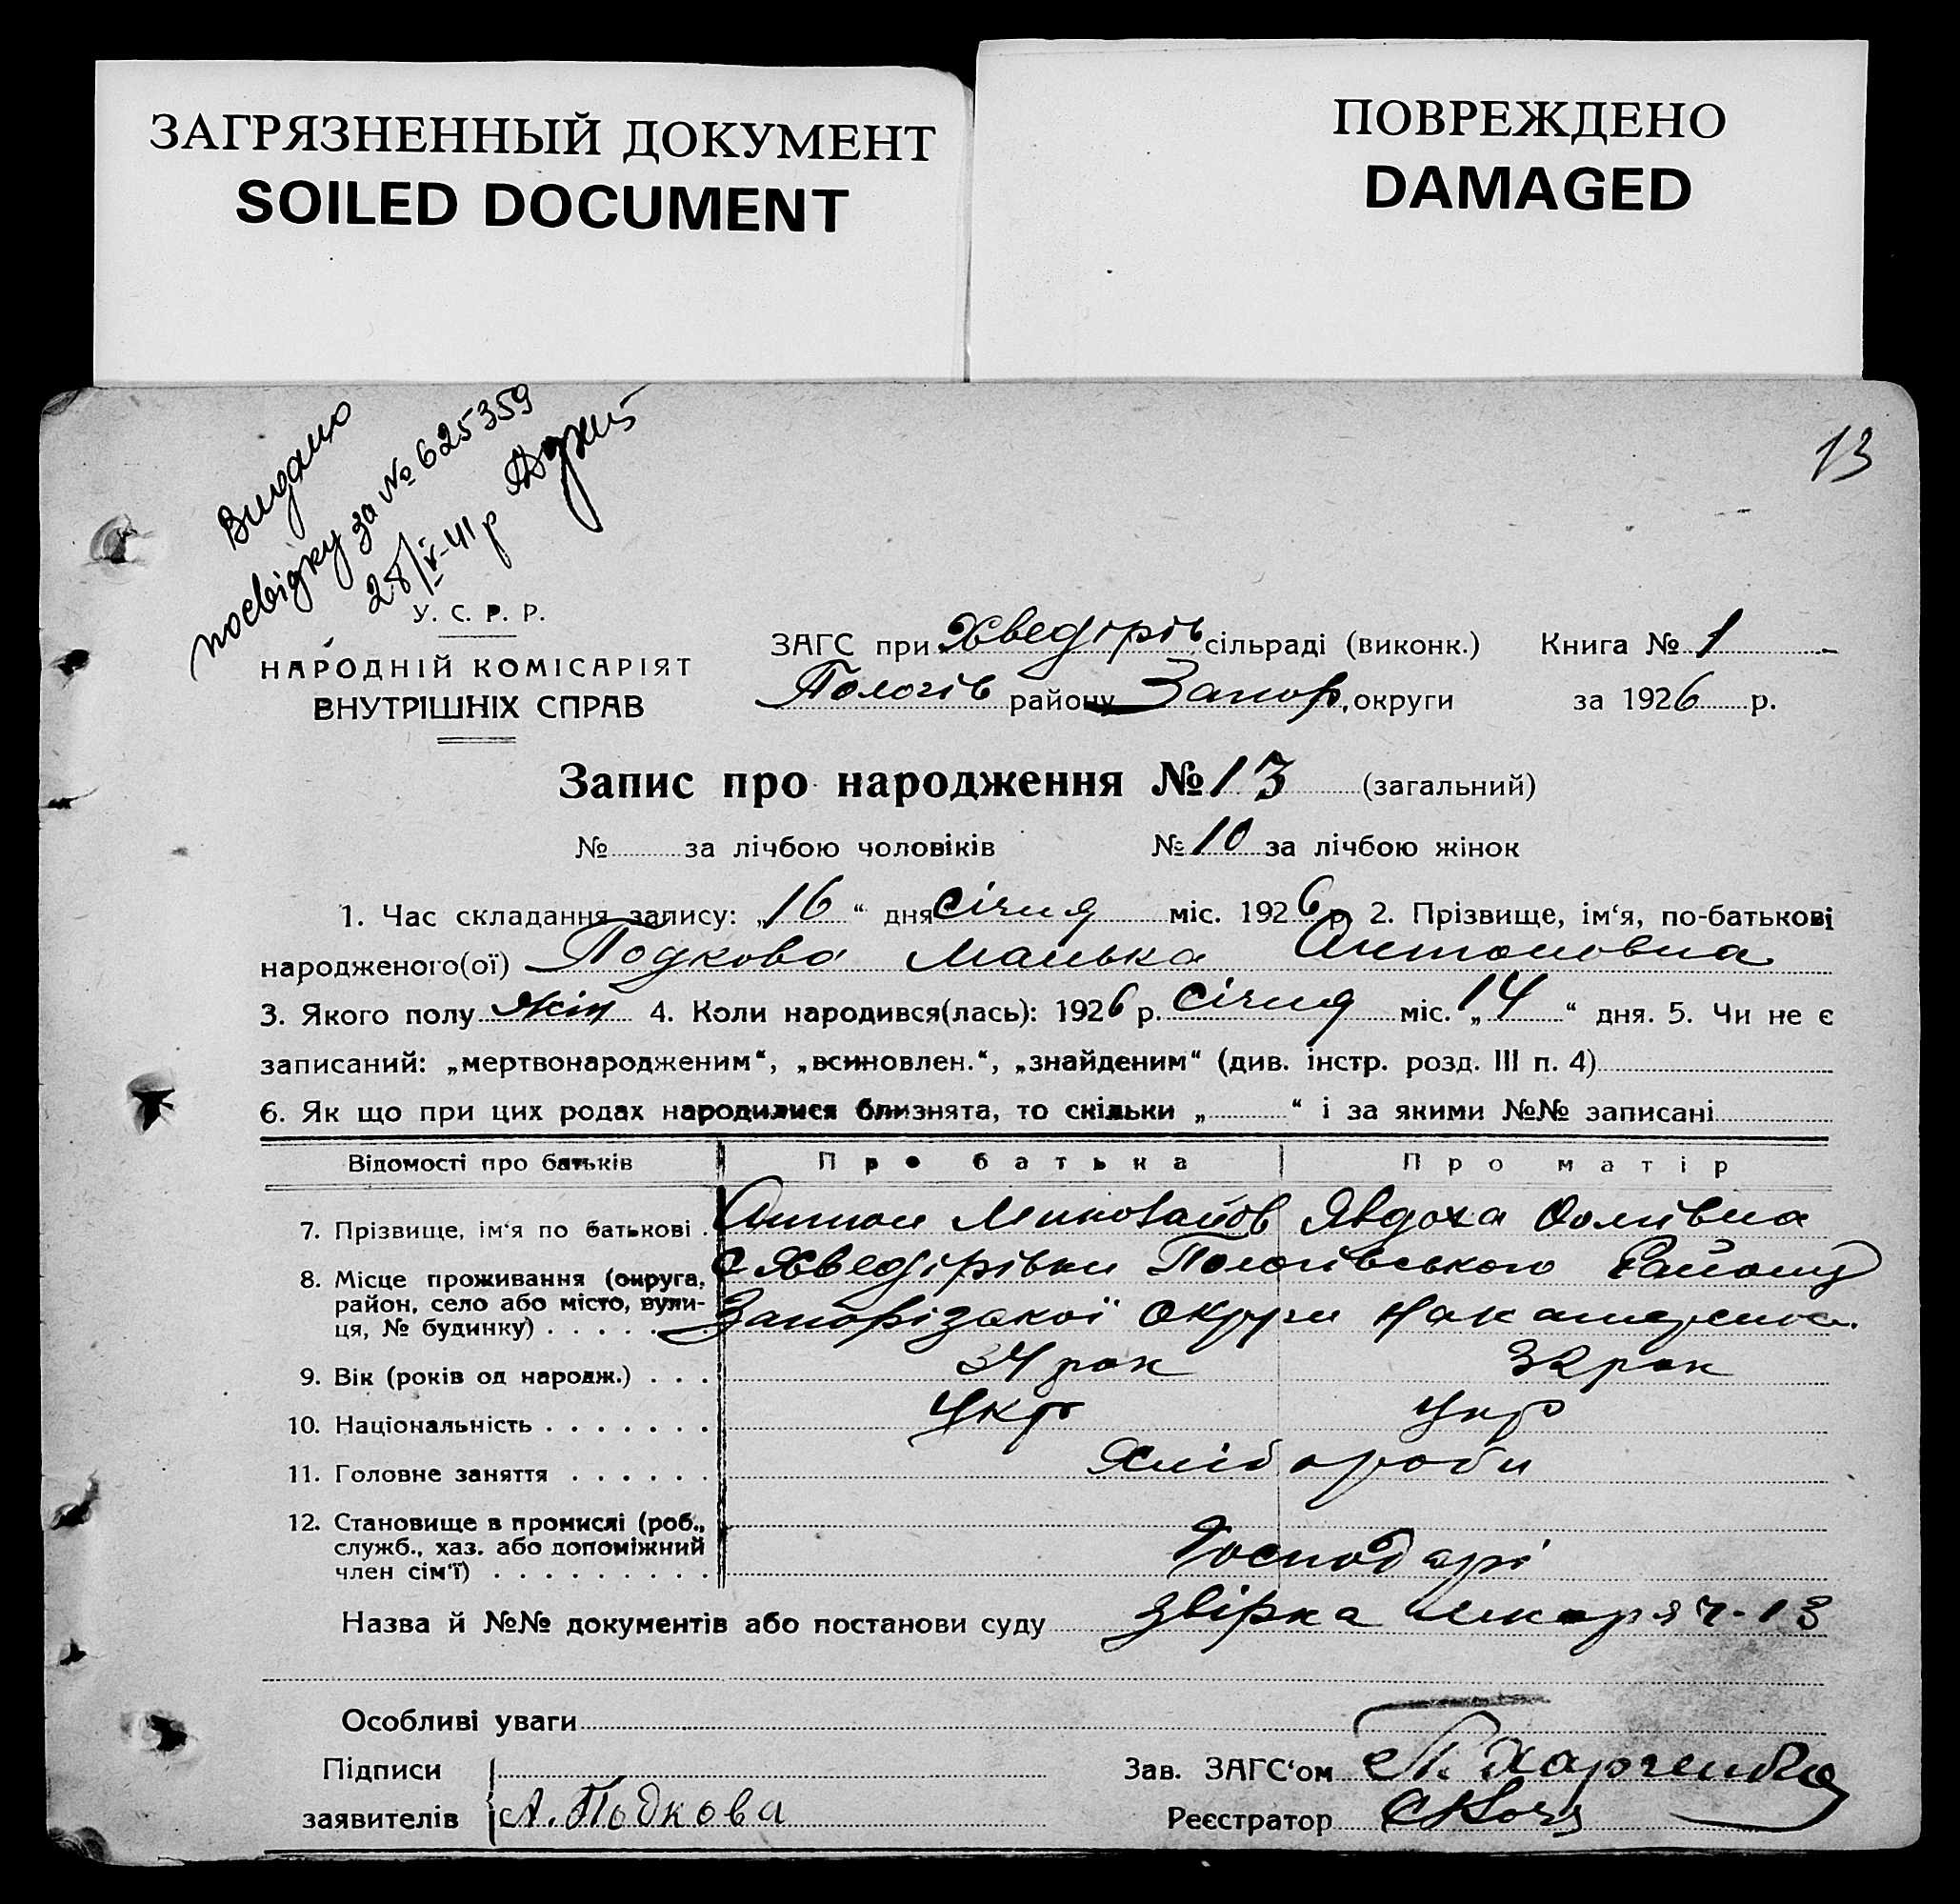 ЗАГРЯЗНЕННЫЙ ДОКУМЕНТ
SOILED DOCUMENT
ПОВРЕЖДЕНО
DAMAGED
13
Видано
посвідку за № 625359
28/IV-41 р
У. С. Р. Р.
НАРОДНІЙ КОМІСАРІЯТ
ВНУТРІШНІХ СПРАВ
ЗАГС при Хведірів сільраді (виконк.) Книга № 1
Пологів району Запор. округи за 1926 р.
Запис про народження № 13 (загальний)
№ за лічбою чоловіків № 10 за лічбою жінок
1. Час складання запису: „16“ дня січня міс. 1926 р. 2. Прізвище, ім‘я, по-батькові
народженого(ої) Подкова Манька Антоновна
3. Якого полу жін 4. Коли народився(лась): 1926 р. січня міс. „14“ дня. 5. Чи не є
записаний: „мертвонародженим“, „всиновлен.“, „знайденим“ (див. інстр. розд. III п. 4)
6. Як що при цих родах народилися близнята, то скільки „ “ і за якими №№ записані
Відомості про батьків Про батька Про матір
7. Прізвище, ім‘я по батькові . Антон Миколайов Явдоха
8. Місце проживання (округа, с Хведірівки Пологівського Району
район, село або місто, вули- Запорізької Округи
ця, № будинку) . . . . .
9. Вік (років од народж.) . . . 34 рок 32 рок
10. Національність . . . . . . . Укр Укр
11. Головне заняття . . . . . . Хлібороби
12. Становище в промислі (роб.,
служб., хаз. або допоміжний Господарі
член сім‘ї) . . . . . . . . .
Назва й №№ документів або постанови суду звірка 13
Особливі уваги
Підписи
заявителів А. Подкова
Зав. ЗАГС‘ом П. Харченко
Реєстратор